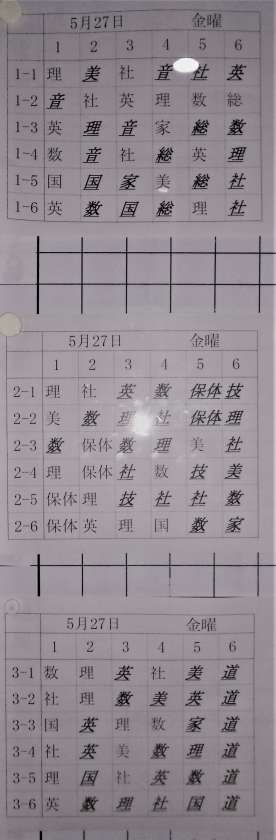 5月27日 金曜
1 2 3 4 5 6
1-1 理 美 社 音 社 英
1-2 音 社 英 理 数 総
1-3 英 理 音 家 総 数
1-4 数 音 社 総 英 理
1-5 国 国 家 美 総 社
1-6 英 数 国 総 理 社
5月27日 金曜
1 2 3 4 5 6
2-1 理 社 英 数 保体 技
2-2 美 数 理 社 保体 理
2-3 数 保体 数 理 美 社
2-4 理 保体 社 数 技 美
2-5 保体 理 技 社 社 数
2-6 保体 英 理 国 数 家
5月27日 金曜
1 2 3 4 5 6
3-1 数 理 英 社 美 道
3-2 社 理 数 美 英 道
3-3 国 英 理 数 家 道
3-4 社 英 美 数 理 道
3-5 理 国 社 英 数 道
3-6 英 数 理 社 国 道